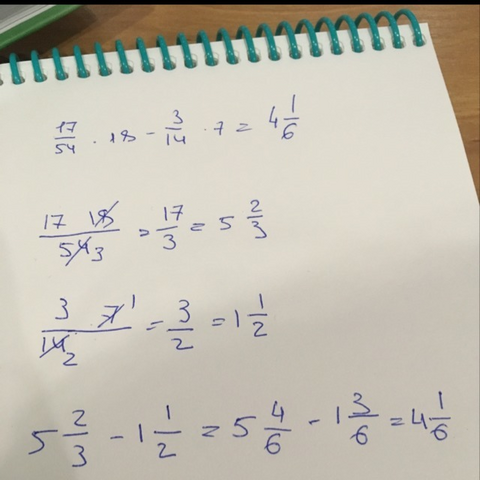 17/54 · 18 - 3/14 · 7 = 4 1/6
17 18/54 3 = 17/3 = 5 2/3
3 7 1/14 2 = 3/2 = 1 1/2
5 2/3 - 1 1/2 = 5 4/6 - 1 3/6 = 4 1/6